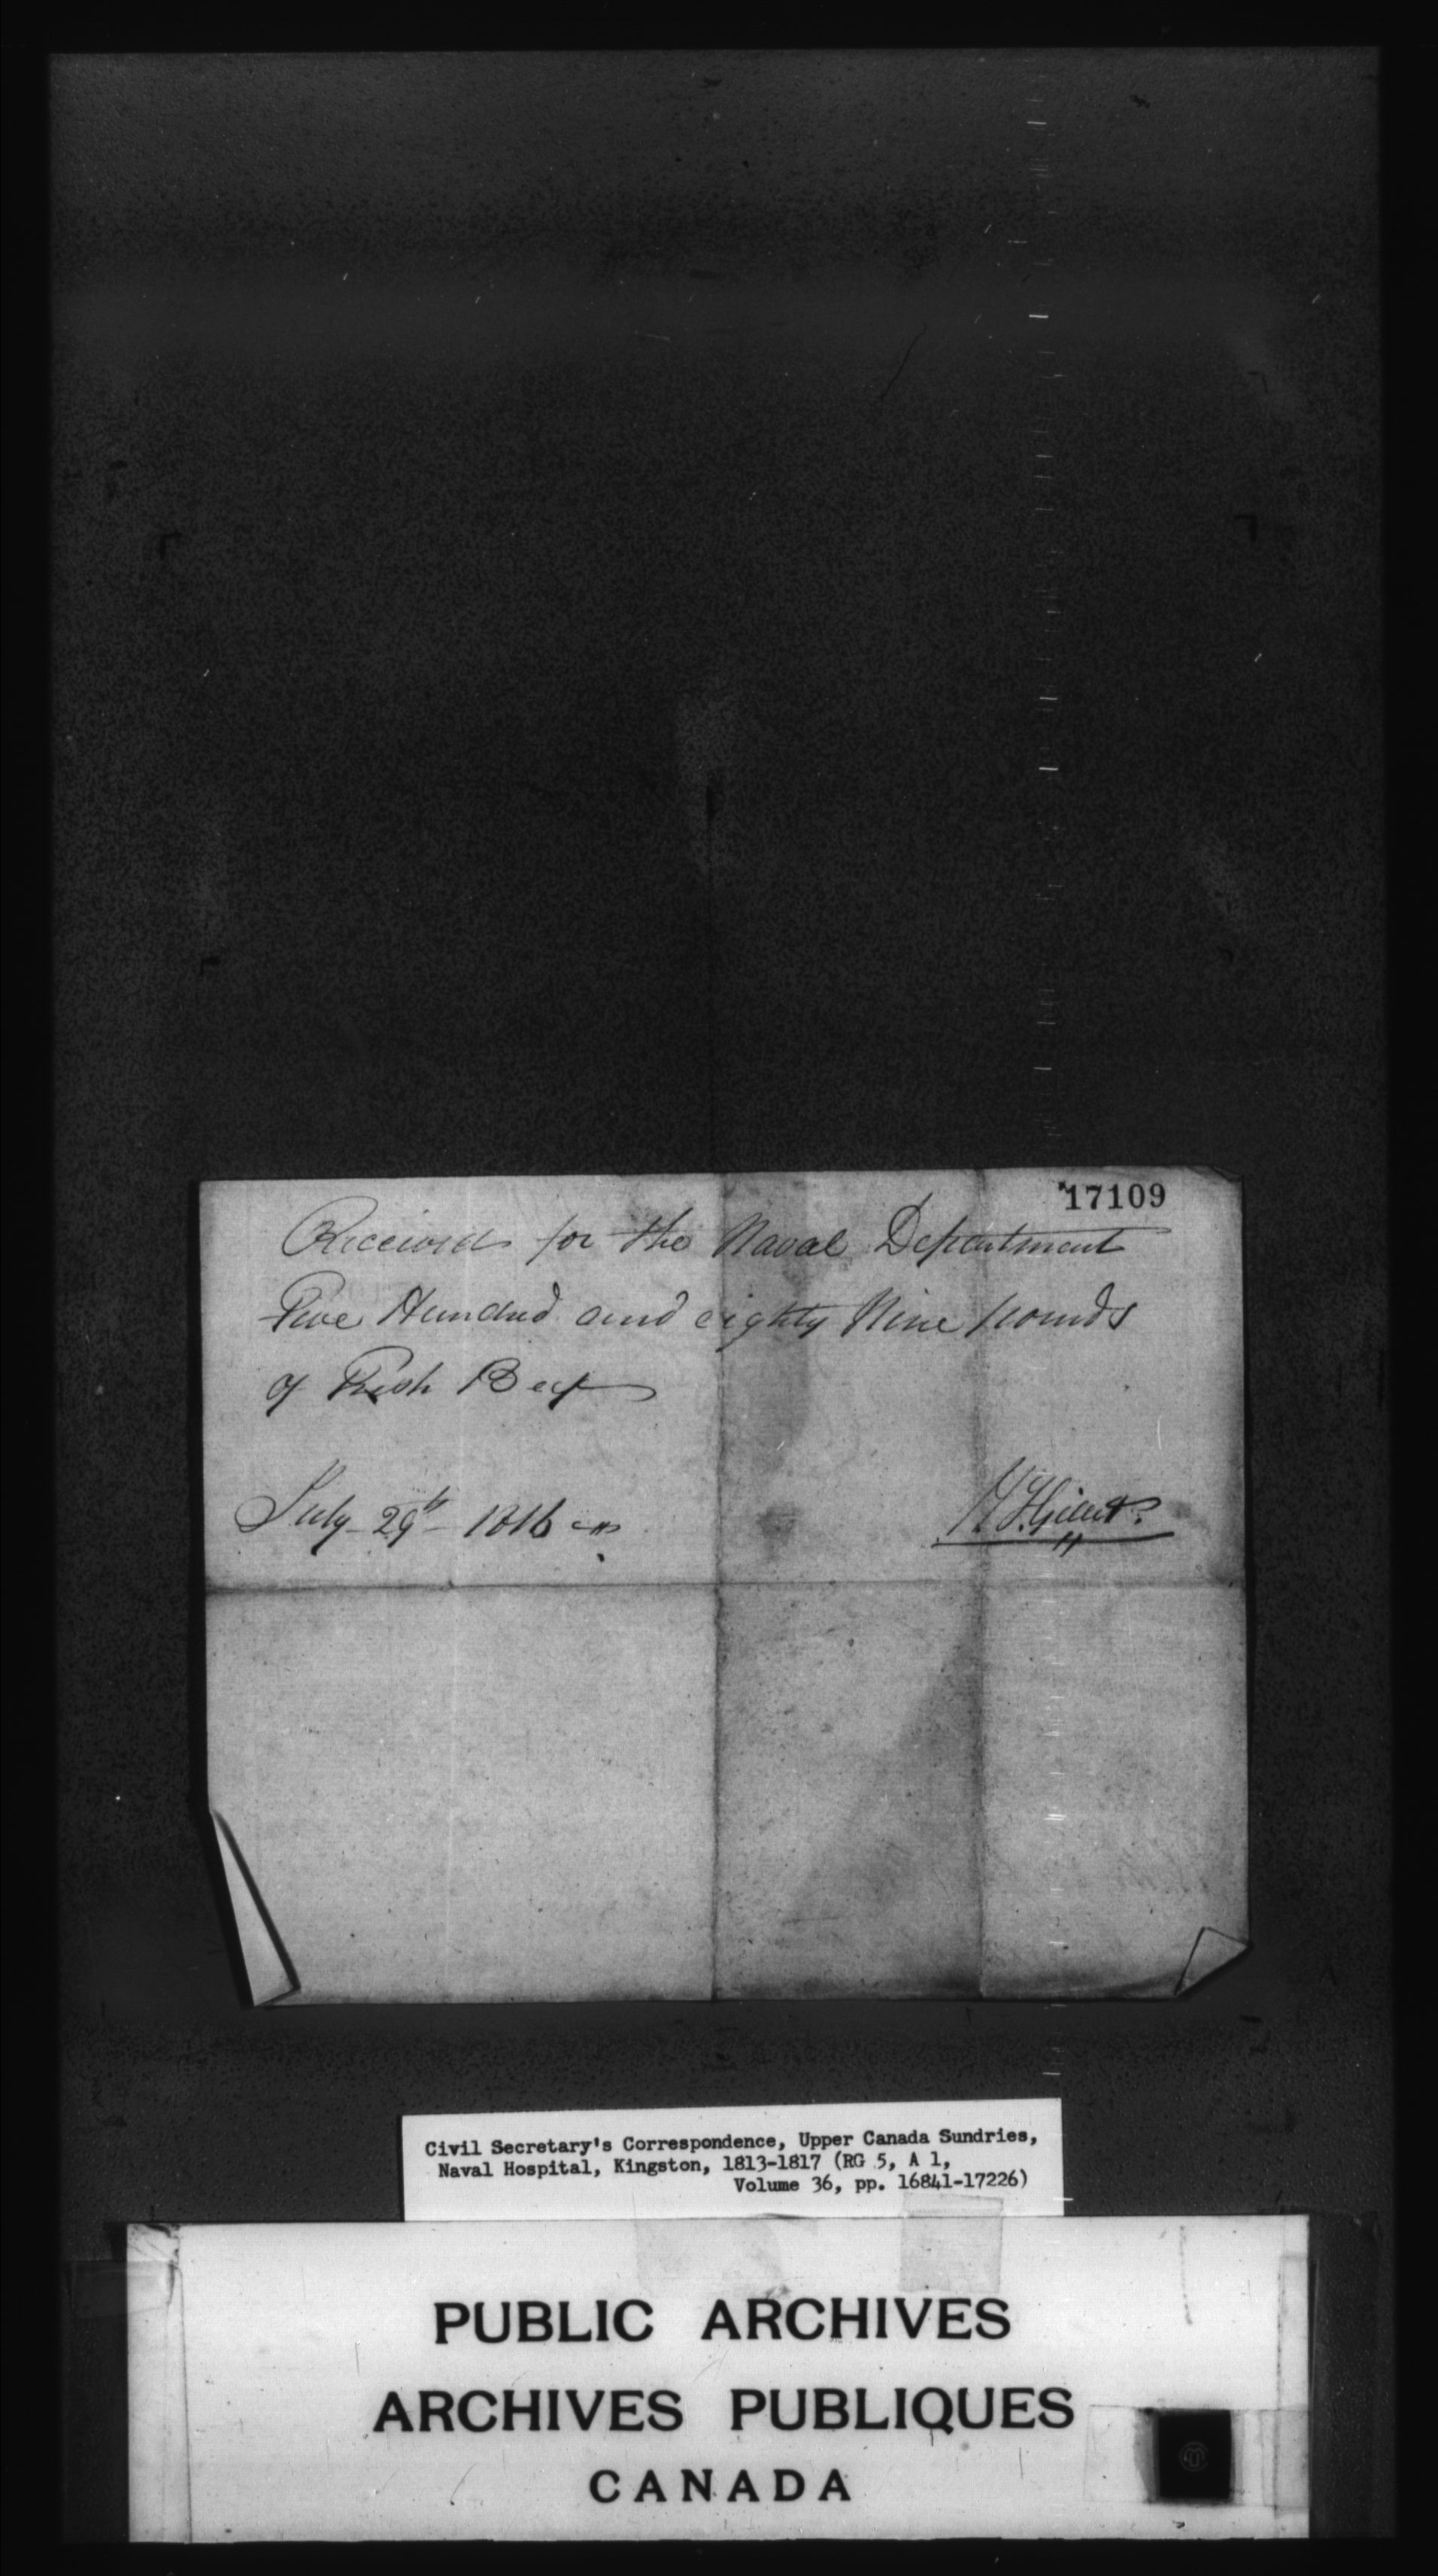 17109
Received for the Naval Department
Five Hundred and eighty Nine pounds
of Fresh Beef
July 29th 1816
Civil Secretary's Correspondence, Upper Canada Sundries,
Naval Hospital, Kingston, 1813-1817 (RG 5, A 1,
Volume 36, pp. 16841-17226)
PUBLIC ARCHIVES
ARCHIVES PUBLIQUES
CANADA